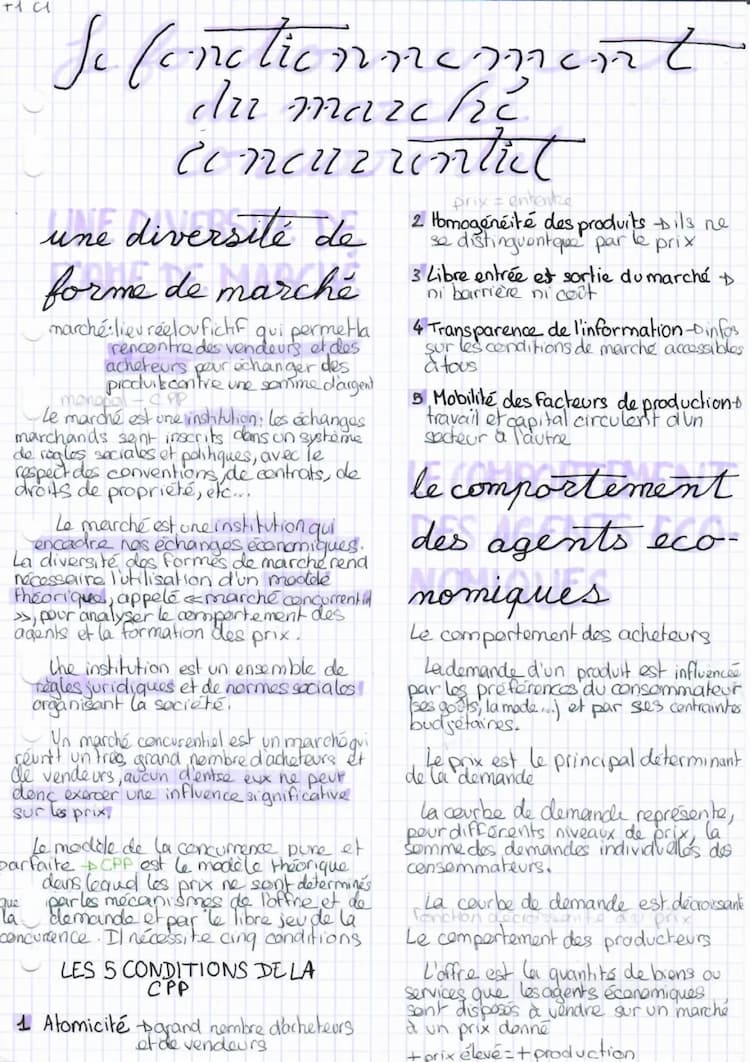 T1 C1
Le fonctionnement
du marché
concurrentiel
UNE DIVERSITÉ DE
une diversité de
FORME DE MARCHÉ
forme de marché
marché: lieu réel ou fictif qui permet la
rencontre des vendeurs et des
acheteurs pour échanger des
produits contre une somme d'argent
monopol - CPP
Le marché est une institution: les échanges
marchands sont inscrits dans un système
de règles sociales et politiques, avec le
respect des conventions, de contrats, de
droits de propriété, etc...
Le marché est une institution qui
encadre nos échanges économiques.
La diversité des formes de marché rend
nécessaire l'utilisation d'un modèle
théorique, appelé « marché concurrentiel
», pour analyser le comportement des
agents et la formation des prix.
Une institution est un ensemble de
règles juridiques et de normes sociales
organisant la société.
Un marché concurentiel est un marché qui
réunit un très grand nombre d'acheteurs et
de vendeurs, aucun d'entre eux ne peut
donc exercer une influence significative
sur les prix.
Le modèle de la concurrence pure et
parfaite → CPP est le modèle théorique
dans lequel les prix ne sont déterminés
que par les mécanismes de l'offre et de
la demande et par le libre jeu de la
concurrence. Il nécessite cinq conditions
LES 5 CONDITIONS DE LA
CPP
1 Atomicité → grand nombre d'acheteurs
et de vendeurs
prix = entente
2 Homogénéité des produits → ils ne
se distinguent que par le prix
3 Libre entrée et sortie du marché →
ni barrière ni coût
4 Transparence de l'information → infos
sur les conditions de marché accessibles
à tous
5 Mobilité des facteurs de production →
travail et capital circulent d'un
secteur à l'autre
LE COMPORTEMENT
le comportement
DES AGENTS ECO-
des agents eco-
NOMIQUES
nomiques
Le comportement des acheteurs
La demande d'un produit est influencée
par les préférences du consommateur
(ses goûts, la mode...) et par ses contraintes
budjétaires.
Le prix est le principal déterminant
de la demande
La courbe de demande représente,
pour différents niveaux de prix, la
somme des demandes individuelles des
consommateurs.
La courbe de demande est décroissante
fonction décroissante du prix
Le comportement des producteurs
L'offre est la quantité de biens ou
services que les agents économiques
sont disposés à vendre sur un marché
à un prix donné
+ prix élevé = + production